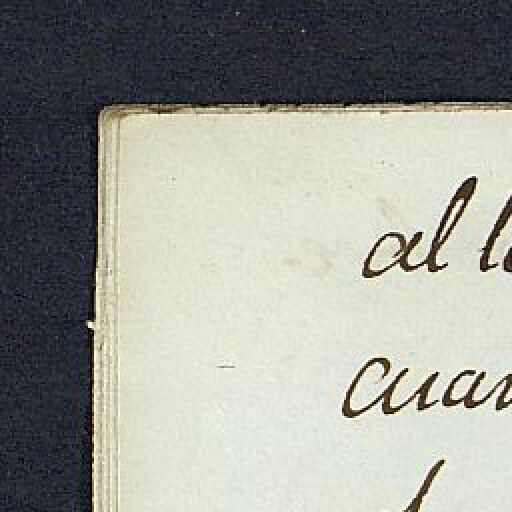 al l
cuan